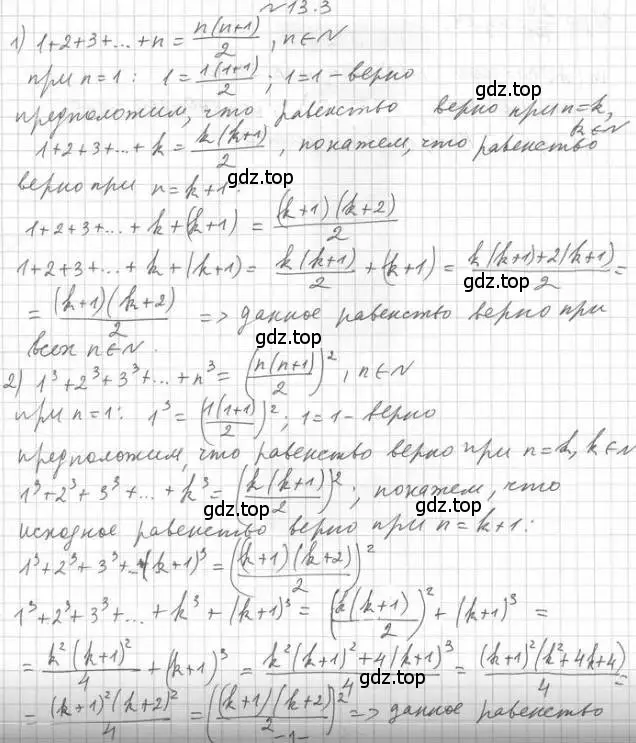 №13.3
1) 1+2+3+...+n = n(n+1)/2, n∈N
при n=1: 1 = 1(1+1)/2; 1=1 - верно
предположим, что равенство верно при n=k,
1+2+3+...+k = k(k+1)/2, покажем, что равенство k∈N
верно при n=k+1:
gdz.top
1+2+3+...+k+(k+1) = (k+1)(k+2)/2
gdz.top
1+2+3+...+k+(k+1) = k(k+1)/2 + (k+1) = k(k+1)+2(k+1)/2 =
gdz.top
= (k+1)(k+2)/2 => данное равенство верно при
gdz.top
всех n∈N.
2) 1³+2³+3³+...+n³ = (n(n+1)/2)², n∈N
gdz.top
при n=1: 1³ = (1(1+1)/2)²; 1=1 - верно
предположим, что равенство верно при n=k, k∈N
gdz.top
1³+2³+3³+...+k³ = (k(k+1)/2)²; покажем, что
gdz.top
исходное равенство верно при n=k+1:
1³+2³+3³+...+(k+1)³ = ((k+1)(k+2)/2)²
gdz.top
1³+2³+3³+...+k³+(k+1)³ = (k(k+1)/2)² + (k+1)³ =
gdz.top
= k²(k+1)²/4 + (k+1)³ = k²(k+1)²+4(k+1)³/4 = (k+1)²(k²+4k+4)/4 =
gdz.top
= (k+1)²(k+2)²/4 = ((k+1)(k+2)/2)² => данное равенство
-1-
gdz.top